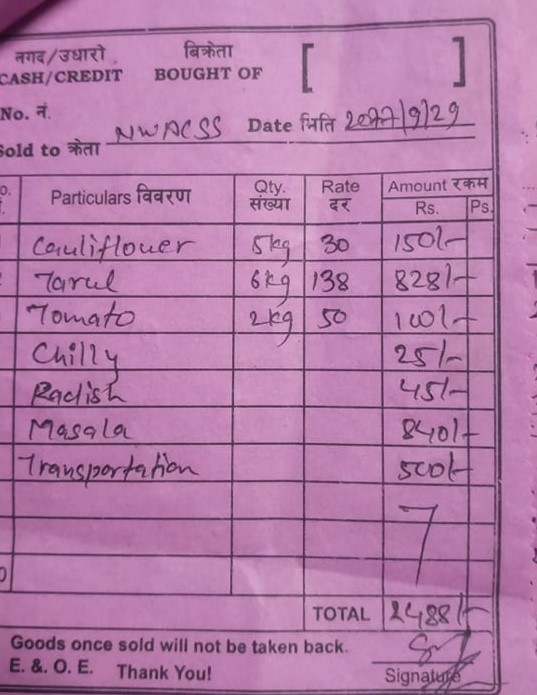 नगद/उधारो बिक्रेता [ ]
CASH/CREDIT BOUGHT OF
No. नं.
Date मिति 2077/9/29
Sold to क्रेता NWACSS
Particulars विवरण Qty. संख्या Rate दर Amount रकम
Rs. Ps.
Cauliflower 5kg 30 150/-
Tarul 6kg 138 828/-
Tomato 2kg 50 100/-
Chilly 25/-
Radish 45/-
Masala 840/-
Transportation 500/-
TOTAL 2488/-
Goods once sold will not be taken back.
E. & O. E. Thank You!
Signature